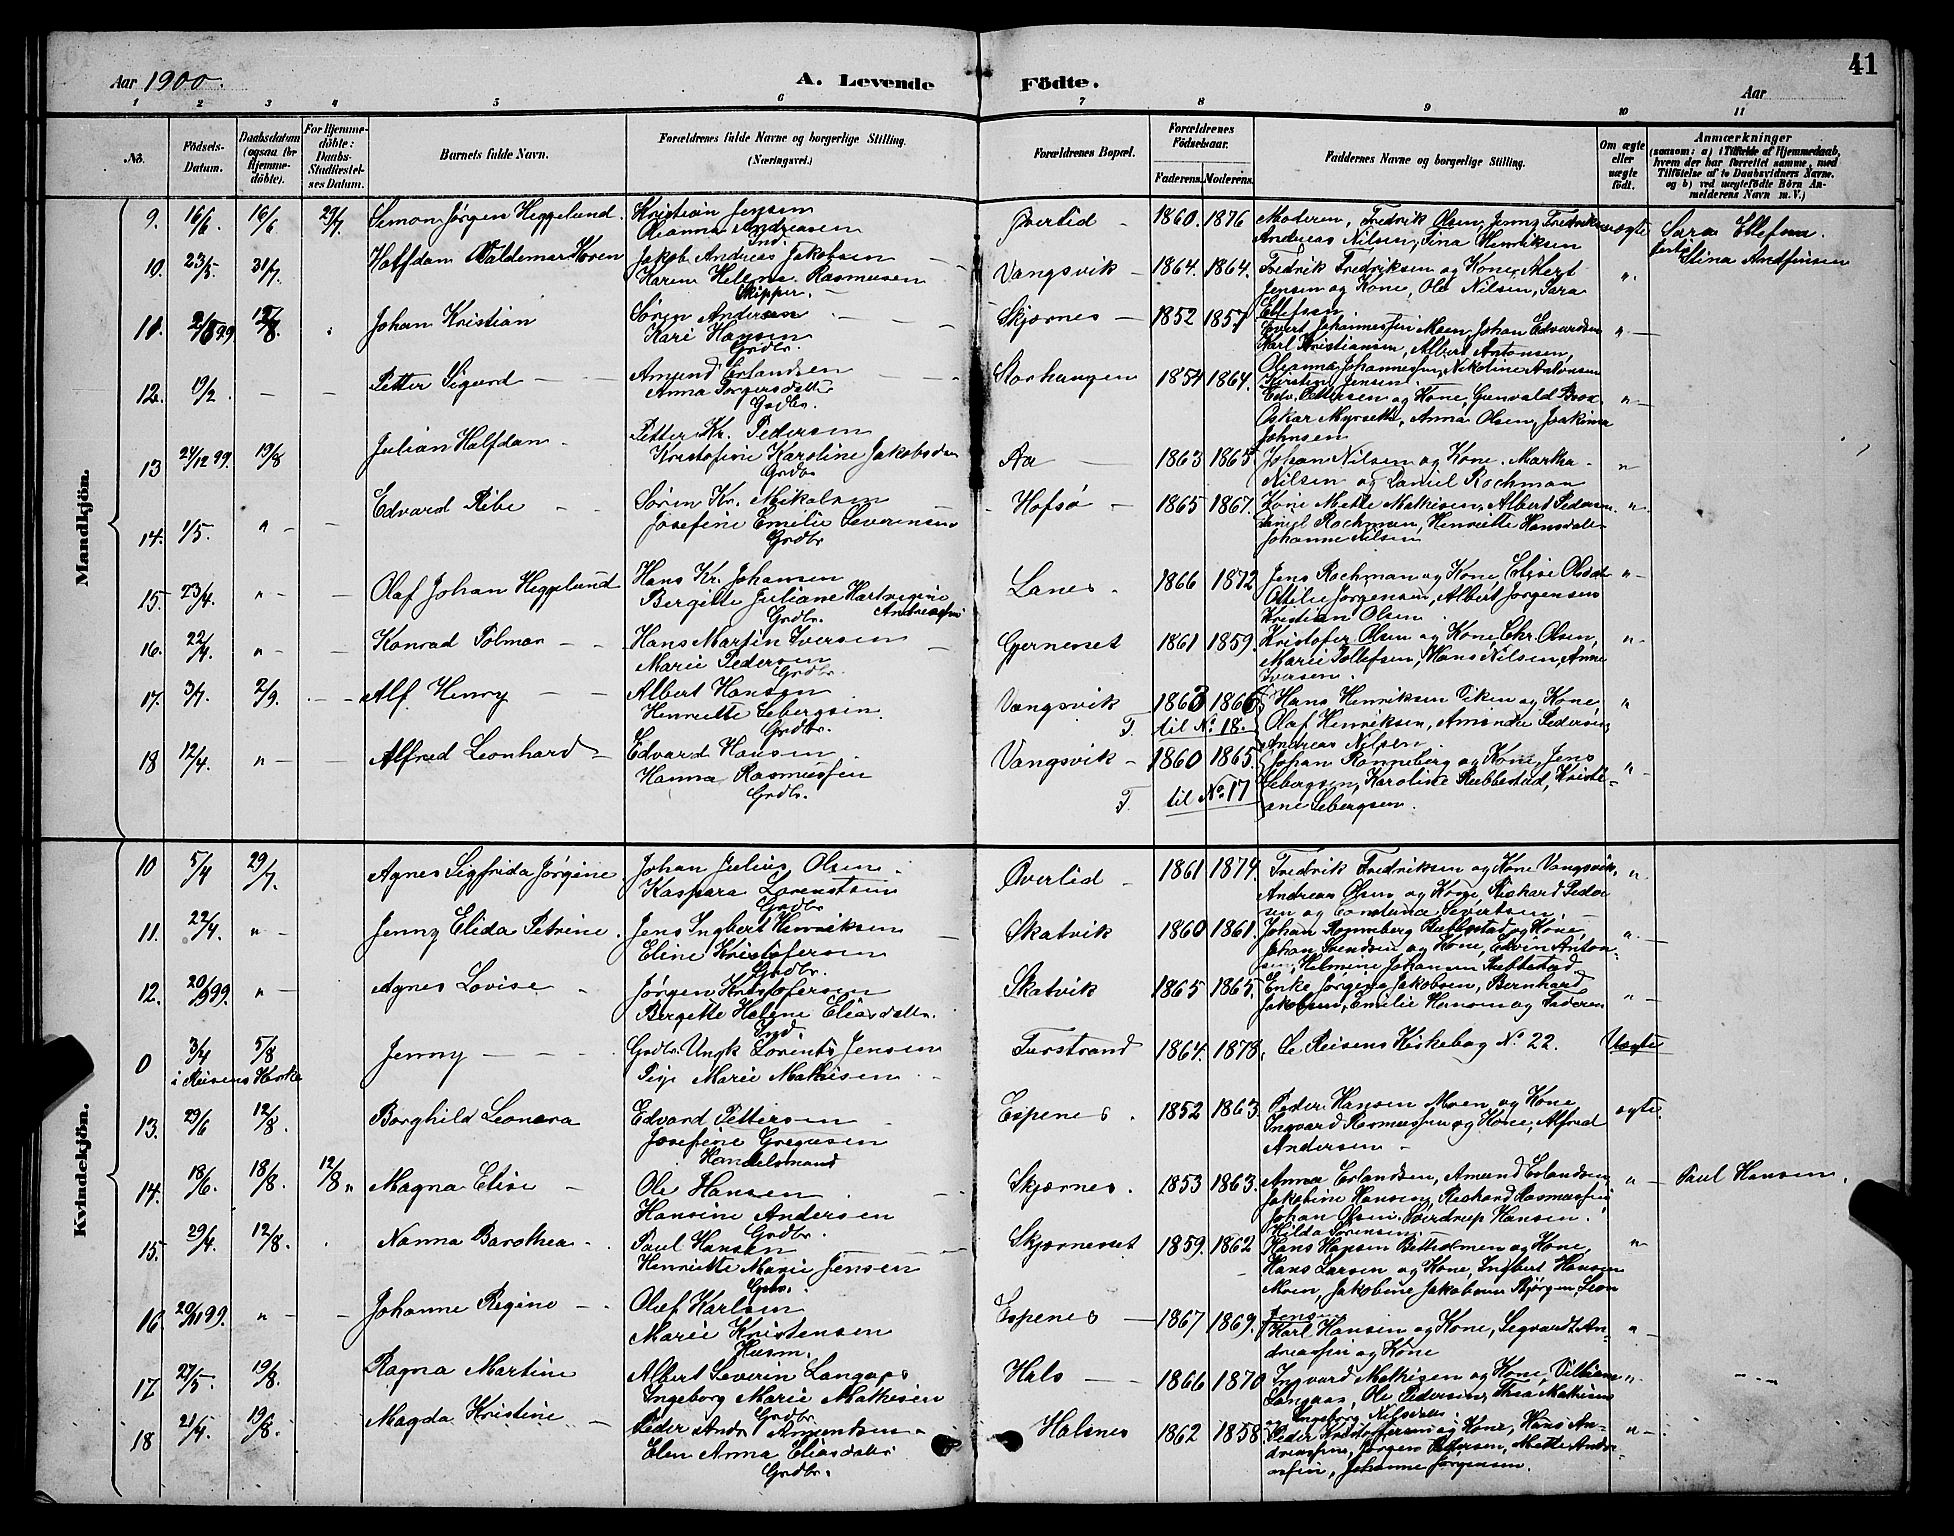 Aar 1900. A. Levende Födte. Aar 41
1 2 3 4 5 6 7 8 9 10 11
No. Födsels-Datum. Daabsdatum (ogsaa for Hjemme-döbte). For Hjemme-döbte: Daabs-Stadfæstel-ses Datum. Barnets fulde Navn. Forældrenes fulde Navne og borgerlige Stilling. (Næringsvei.) Forældrenes Bopæl. Forældrenes Födselsaar. Faderens. Moderens. Faddernes Navne og borgerlige Stilling. Om ægte eller uægte födt. Anmærkninger (saasom: a) i Tilfælde af Hjemmedaab, hvem der har forrettet samme, med Tilföielse af to Daabsvidners Navne. og b) ved uægtefödte Börn Anmelderens Navn m. V.)
Mandkjön.
9. 16/6. 16/6 29/7. Simon Jørgen Heggelund. Kristian Jensen Overlid 1860. 1876 Moderen, Fredrik Olsen, Jenny Fredriksen ægte Sara Ellefsen.
Olianna Andreasen Ind. Andreas Nilsen, Tina Henriksen
10. 23/5 31/7. Halfdam Valdemar Horen Jakob Andreas Jakobsen Vangsvik 1864. 1864. Fredrik Fredriksen og Kone, Stina Andfinsen
Karen Helene Rasmusen Skipper. Jensen og Kone, Ole Nilsen, Sara Ellefsen
11. 99 12/8. Johan Kristian Søren Andersen Skjærnes 1852 1857 Evert Johannessen Moen, Johan Edvardsen
Kari Hansen Grdbr. Karl Kristiansen, Albert Antonsen,
Olianna Johannessen, Nikoline Antonsen
12. 19/2. Petter Sigurd Amund Erlandsen Storhaugen 1854 1864. Kirsten Jensen.
Anna Torgersdatter Grdbr. Edv. Pettersen og Kone,
Oskar Myrseth, Anna Olsen, Joakima Johnsen
13 24/12 99. 19/8 Julian Halfdan Petter Kr. Pedersen Aa 1863 1865 Johan Nilsen og Kone. Martha
Kristofine Karoline Jakobsdat Grdbr Nilsen og Daniel Rochman
14. 1/5. Edvard Ribe Søren Kr. Mikalsen Hofsø 1865 1867. Kone Mette Mathisen, Albert Pedersen
Josefine Emilie Severinsen Grdbr Daniel Rochman, Henriette Hansdatter
Johanne Nilsen
15. 23/4. Olaf Johan Heggelund Hans Kr. Johansen Lanes. 1866 1872 Jens Rochman og Kone, Elise Olsdat
Bergitte Juliane Hartvigine Andreassen Grdbr. Ottilie Jørgensen, Albert Jørgensen
Kristian Olsen
16. 22/4. Konrad Tolmar Hans Martin Iversen Gjerneset 1861 1859. Kristofer Olsen og Kone, Chr. Olsen,
Marie Pedersen Grdbr. Marie Tollefsen, Hans Nilsen, Anne Iversen.
17. 3/7. 2/9. Alf. Henry Albert Hansen Vangsvik 1863 1866 Hans Henriksen Viken og Kone,
Henriette Lebergsen. Grdbr. T. til No. 18. Olaf Henriksen, Amanda Pedersen,
Andreas Nilsen.
18 12/4. Alfred Leonhard Edvard Hansen Vangsvik 1860 1865. Johan Ronneberg og Kone, Jens
Hanna Rasmussen Grdbr. T. til No 17 Lebergsen, Karoline Rubbestad, Kristi-
ane Lebergsen.
Kvindekjön.
10 5/4 29/7. Agnes Sigfrida Jørgine Johan Julius Olsen Overlid 1861 1874. Fredrik Fredriksen og Kone Vangsvik,
Kaspara Lorentsen Grdbr Andreas Olsen og Kone, Rikhard Peder-
sen og Constance Sivertsen.
11. 22/4. Jenny Elida Petrine. Jens Ingbert Henriksen Skatvik 1860 1861. Johan Ronneberg Rubbestad og Kone,
Eline Kristofersen Grdbr. Johan Svendsen og Kone, Edvin Anton-
sen, Helmine Johansen Rubbestad
12. 20/9 99. Agnes Lovise Jørgen Kristofersen Skatvik 1865 1865. Enke Jørgine Jakobsen, Bernhard
Bergette Helene Eliasdatter. Ind. Jakobsen, Emilie Hansen og Faderen
0 3/4 5/8 Jenny Grdbr. Ungk Lorents Jensen Furstrand 1864. 1878. Se Reisens Kirkebog No 22. Uægte
i Reisens Kirke Pige Marie Mathisen
13. 29/6 12/8. Borghild Leonora Edvard Pettersen Espenes. 1852 1863 Peder Hansen Moen og Kone ægte.
Josefine Gregusen Handelsmand Ingvard Rasmussen og Kone, Alfred
Andersen
14. 18/6. 18/8. 12/8 Magna Elise Ole Hansen Skjærnes. 1853 1863. Anna Erlandsen, Amund Erlandsen Paul Hansen.
Hansine Andersen Grdbr. Jakobine Hansen, Rikhard Rasmussen
Johan Olsen. Sverdrup Hansen.
15. 29/4. 12/8. Nanna Barothea Paul Hansen Skjærneset 1859. 1862 Hilda Sørensen.
Henriette Marie Jensen Grbr. Hans Hansen og Kone,
Hans Larsen og Kone, Ingbert Hansen
Moen, Jakobine Jakobsen
16. 20/11 99. Johanne Regine Oluf Karlsen Espenes 1867 1869. Jensen
Marie Kristensen Husm. Karl Hansen og Kone, Segvardt An-
dreassen og Kone
17 27/5. 19/8. Ragna Martine Albert Severin Langaas Hals 1866 1870 Ingvard Mathisen og Kone, Vilhelm
Ingeborg Marie Mathisen Grdbr. Langaas, Ole Pedersen, Thea Mathisen
og Ingeborg Nilsdatter.
18 21/4. 19/8. Magda Kristine Peder Andr Amundsen Halsnes 1862 1858 Peder Kristoffersen og Kone, Hans An-
Elen Anna Eliasdatter Grdbr. dreassen, Jørgen Pedersen, Mette Andre-
assen, Johanne Jørgensen.